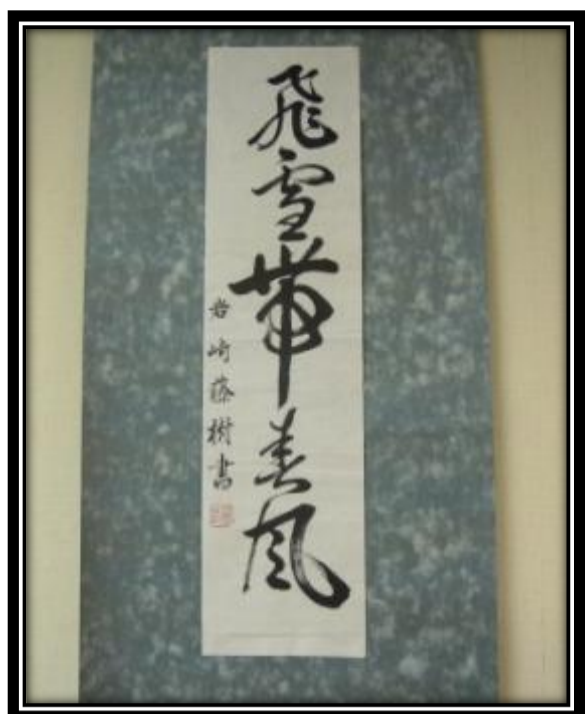 飛雪帯春風
岩崎藤樹書